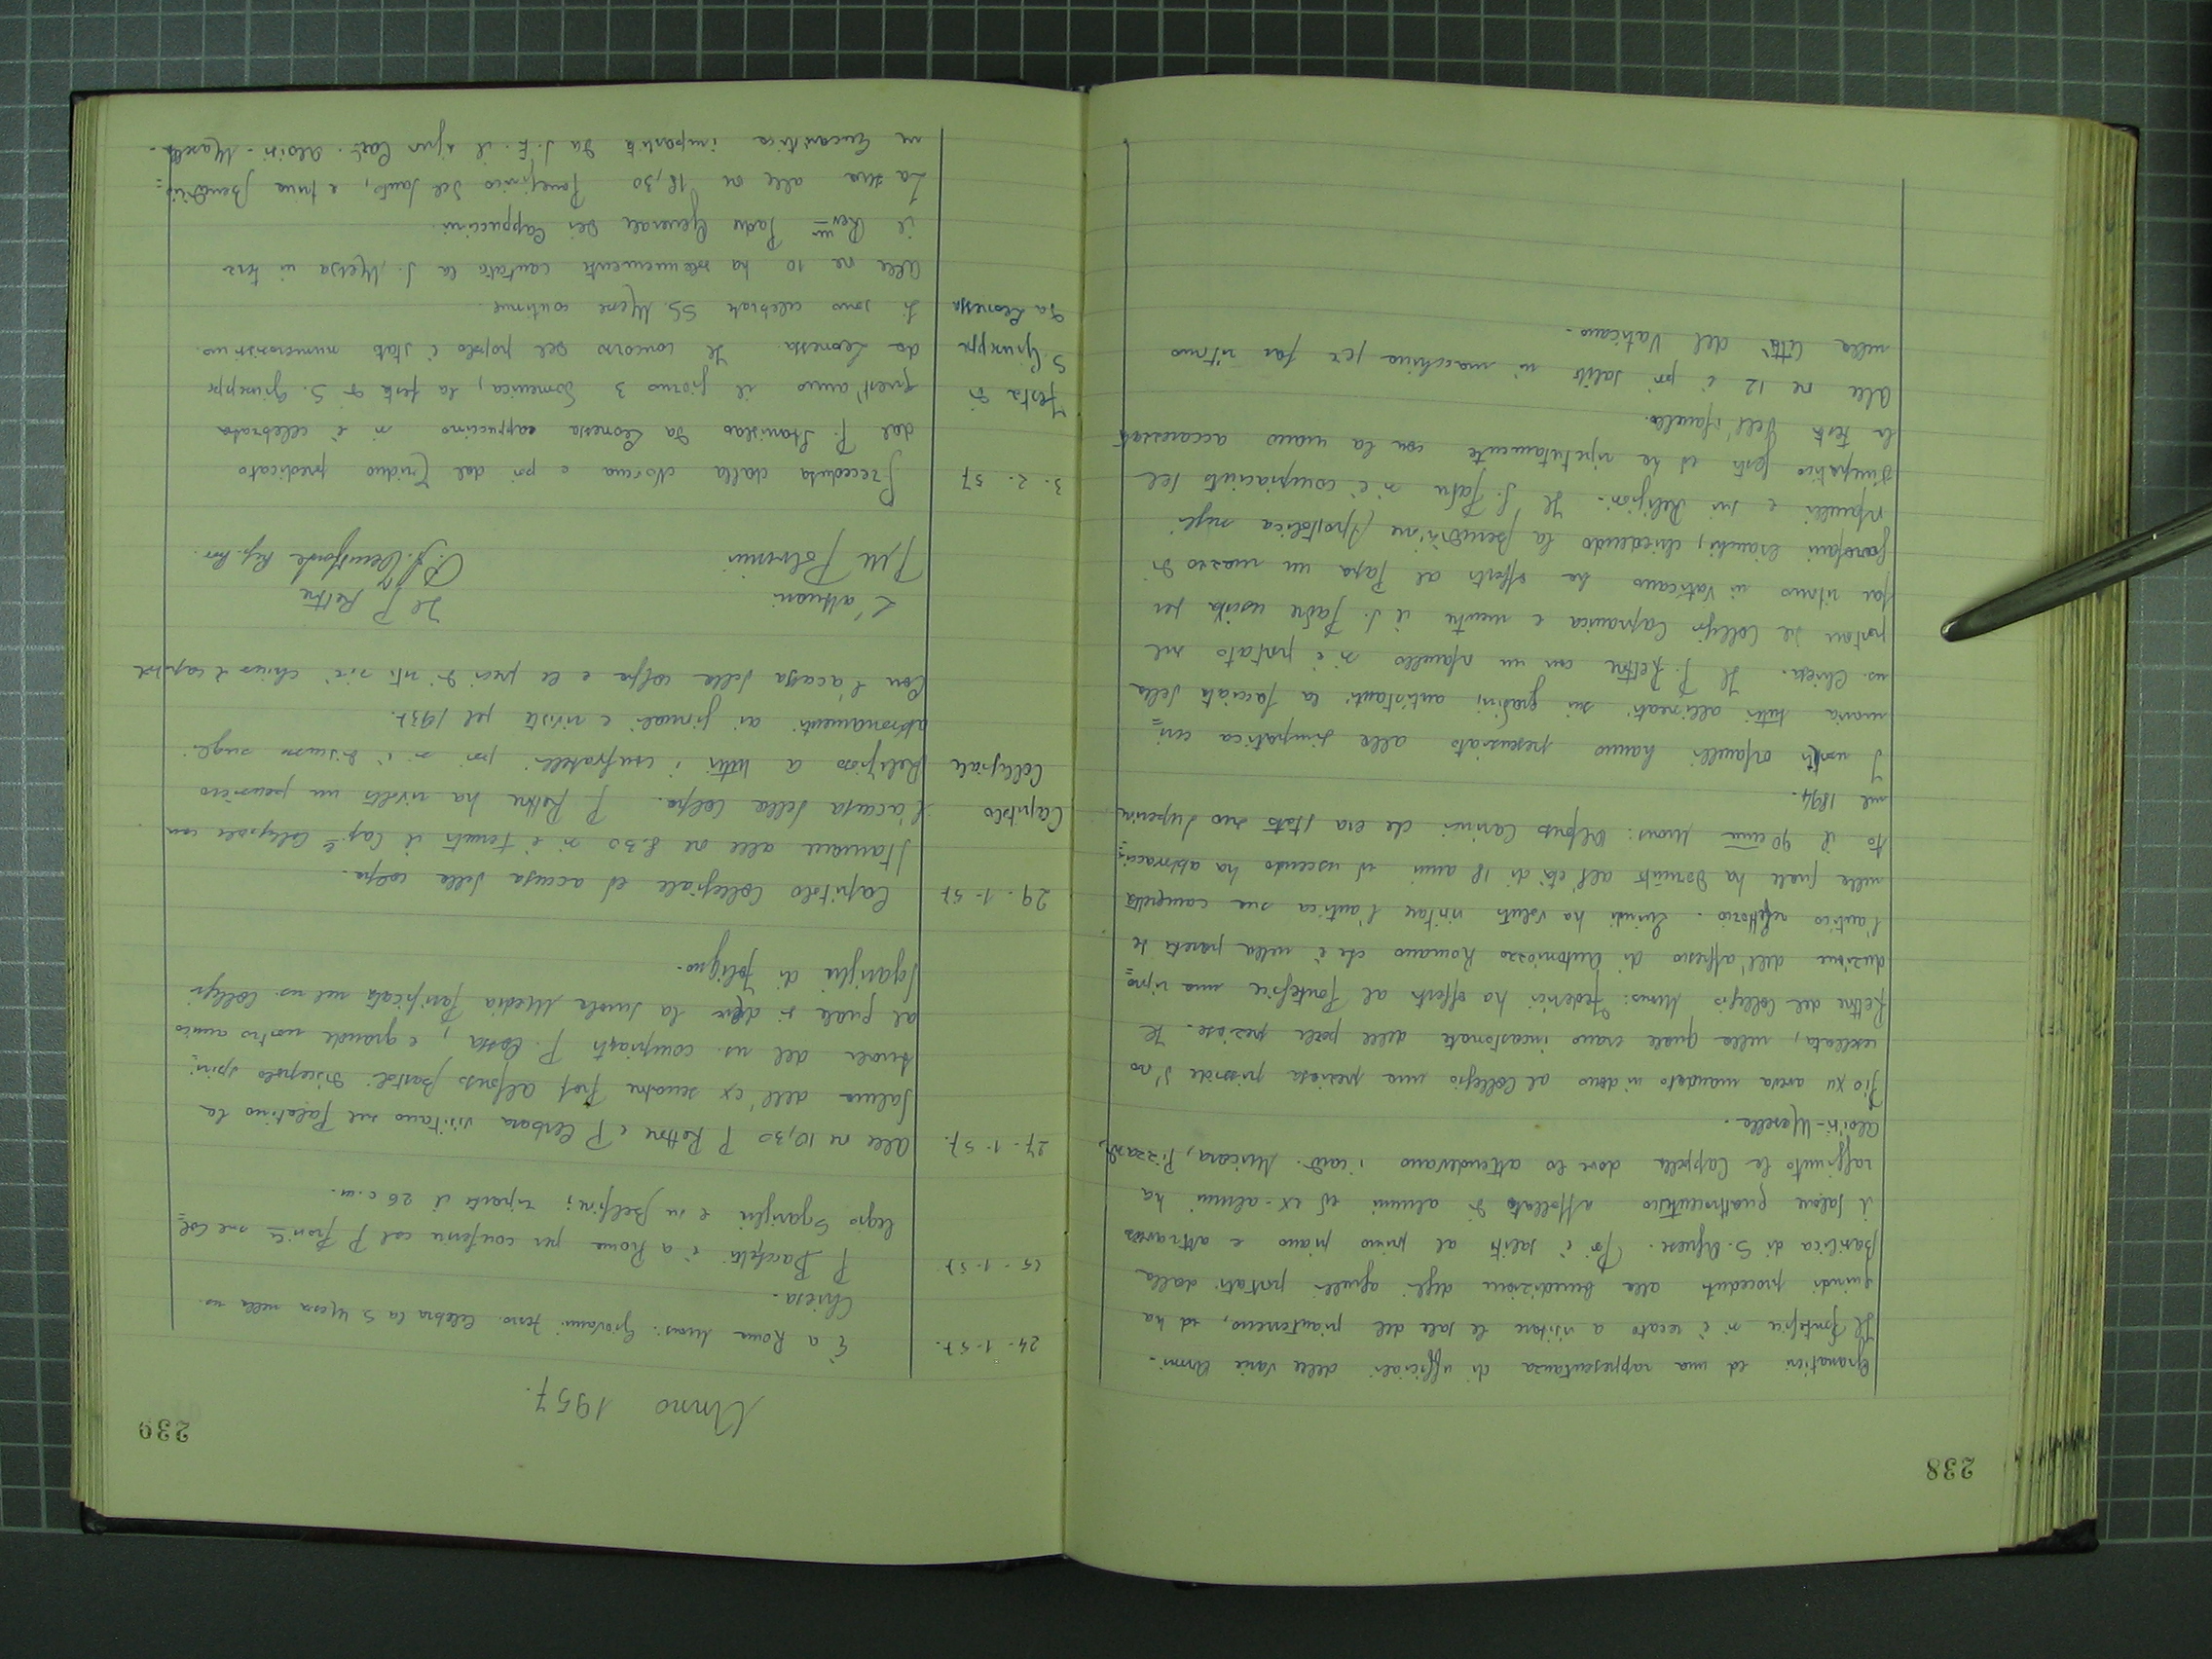 238
Granatieri ed una rappresentanza di ufficiali delle varie Armi.
Il Pontefice si è recato a visitare le sale del pianterreno, ed ha
quindi proceduto alla benedizione degli agnelli portati dalla
Basilica di S. Agnese. Poi è salito al primo piano e attraverso
il salone quattrocentesco affollato di alunni ed ex-alunni ha
raggiunto la Cappella dove lo attendevano i card. Micara, Pizzardo,
Aloisi-Masella.
Pio XII aveva mandato in dono al Collegio una preziosa pisside d'oro
cesellata, nella quale erano incastonate delle perle preziose. Il
Rettore del Collegio Mons: Federici ha offerto al Pontefice una ripro=
duzione dell'affresco di Antoniazzo Romano che è nella parete
l'antico refettorio. Quindi ha voluto visitare l'antica sua cameretta
nella quale ha dormito all'età di 18 anni ed uscendo ha abbracci=
to il 90enne Mons: Alfonso Carinci che era stato suo Superiore
nel 1894.
I nostri orfanelli hanno presenziato alla simpatica ceri=
monia tutti allineati sui gradini antistanti la facciata della
ns. Chiesa. Il P. Rettore con un orfanello si è portato nel
portone del Collegio Capranica e mentre il S. Padre usciva per
far ritorno in Vaticano ha offerto al Papa un mazzo di
garofani bianchi, chiedendo la benedizione Apostolica sugli
orfanelli e sui Religiosi. Il S. Padre si è compiaciuto del
simpatico gesto ed ha ripetutamente con la mano accarezzato
la testa dell'orfanello.
Alle ore 12 è poi salito in macchina per far ritorno
nella Città del Vaticano.
239
Anno 1957.
24-1-57. È a Roma Mons: Giovanni Celebra la S Messa nella ns.
Chiesa.
25-1-57. P. è a Roma per conferire col P sul Col=
legio Sgariglia e su Belfiore; riparte il 26 c.m.
27-1-57. Alle ore 10,30 P Rettore e P Cerbara visitano sul Palatino la
salma dell'ex senatore Prof Alfonso Bartoli discepolo spiri
tuale del ns. compianto P. Cossa, e grande nostro amico
al quale si deve la Scuola Media Parificata nel ns. Collegio
Sgariglia di Foligno.
29-1-57 Capitolo Collegiale ed accusa della colpa.
Stamane alle ore 8.30 si è tenuto il Cap.lo Collegiale con
Capitolo l'accusa della Colpa. P Rettore ha rivolto un pensiero
Collegiale Religioso a tutti i confratelli: poi si è discusso sugli
abbonamenti ai giornali e riviste pel 1957.
Con l'accusa della colpa e le preci di rito si è chiuso il capitolo
L'attuario Il P Rettore
P.
3-2-57 Preceduta dalla Novena e poi dal Triduo predicato
dal P. Stanislao da Leonessa cappuccino si è celebrata
Festa di quest'anno il giorno 3 Domenica, la festa di S. Giuseppe
S. Giuseppe da Leonessa. Il concorso del popolo è stato numerosissimo.
da Leonessa Si sono celebrate SS. Messe continue.
Alle ore 10 ha solennemente cantato la S. Messa in terzo
il Rev.mo Padre Generale dei Cappuccini.
La sera alle ore 18,30 Panegirico del Santo, e trina Benedizio=
ne Eucaristica impartita da S. E. il Card. Aloisi-Masella.